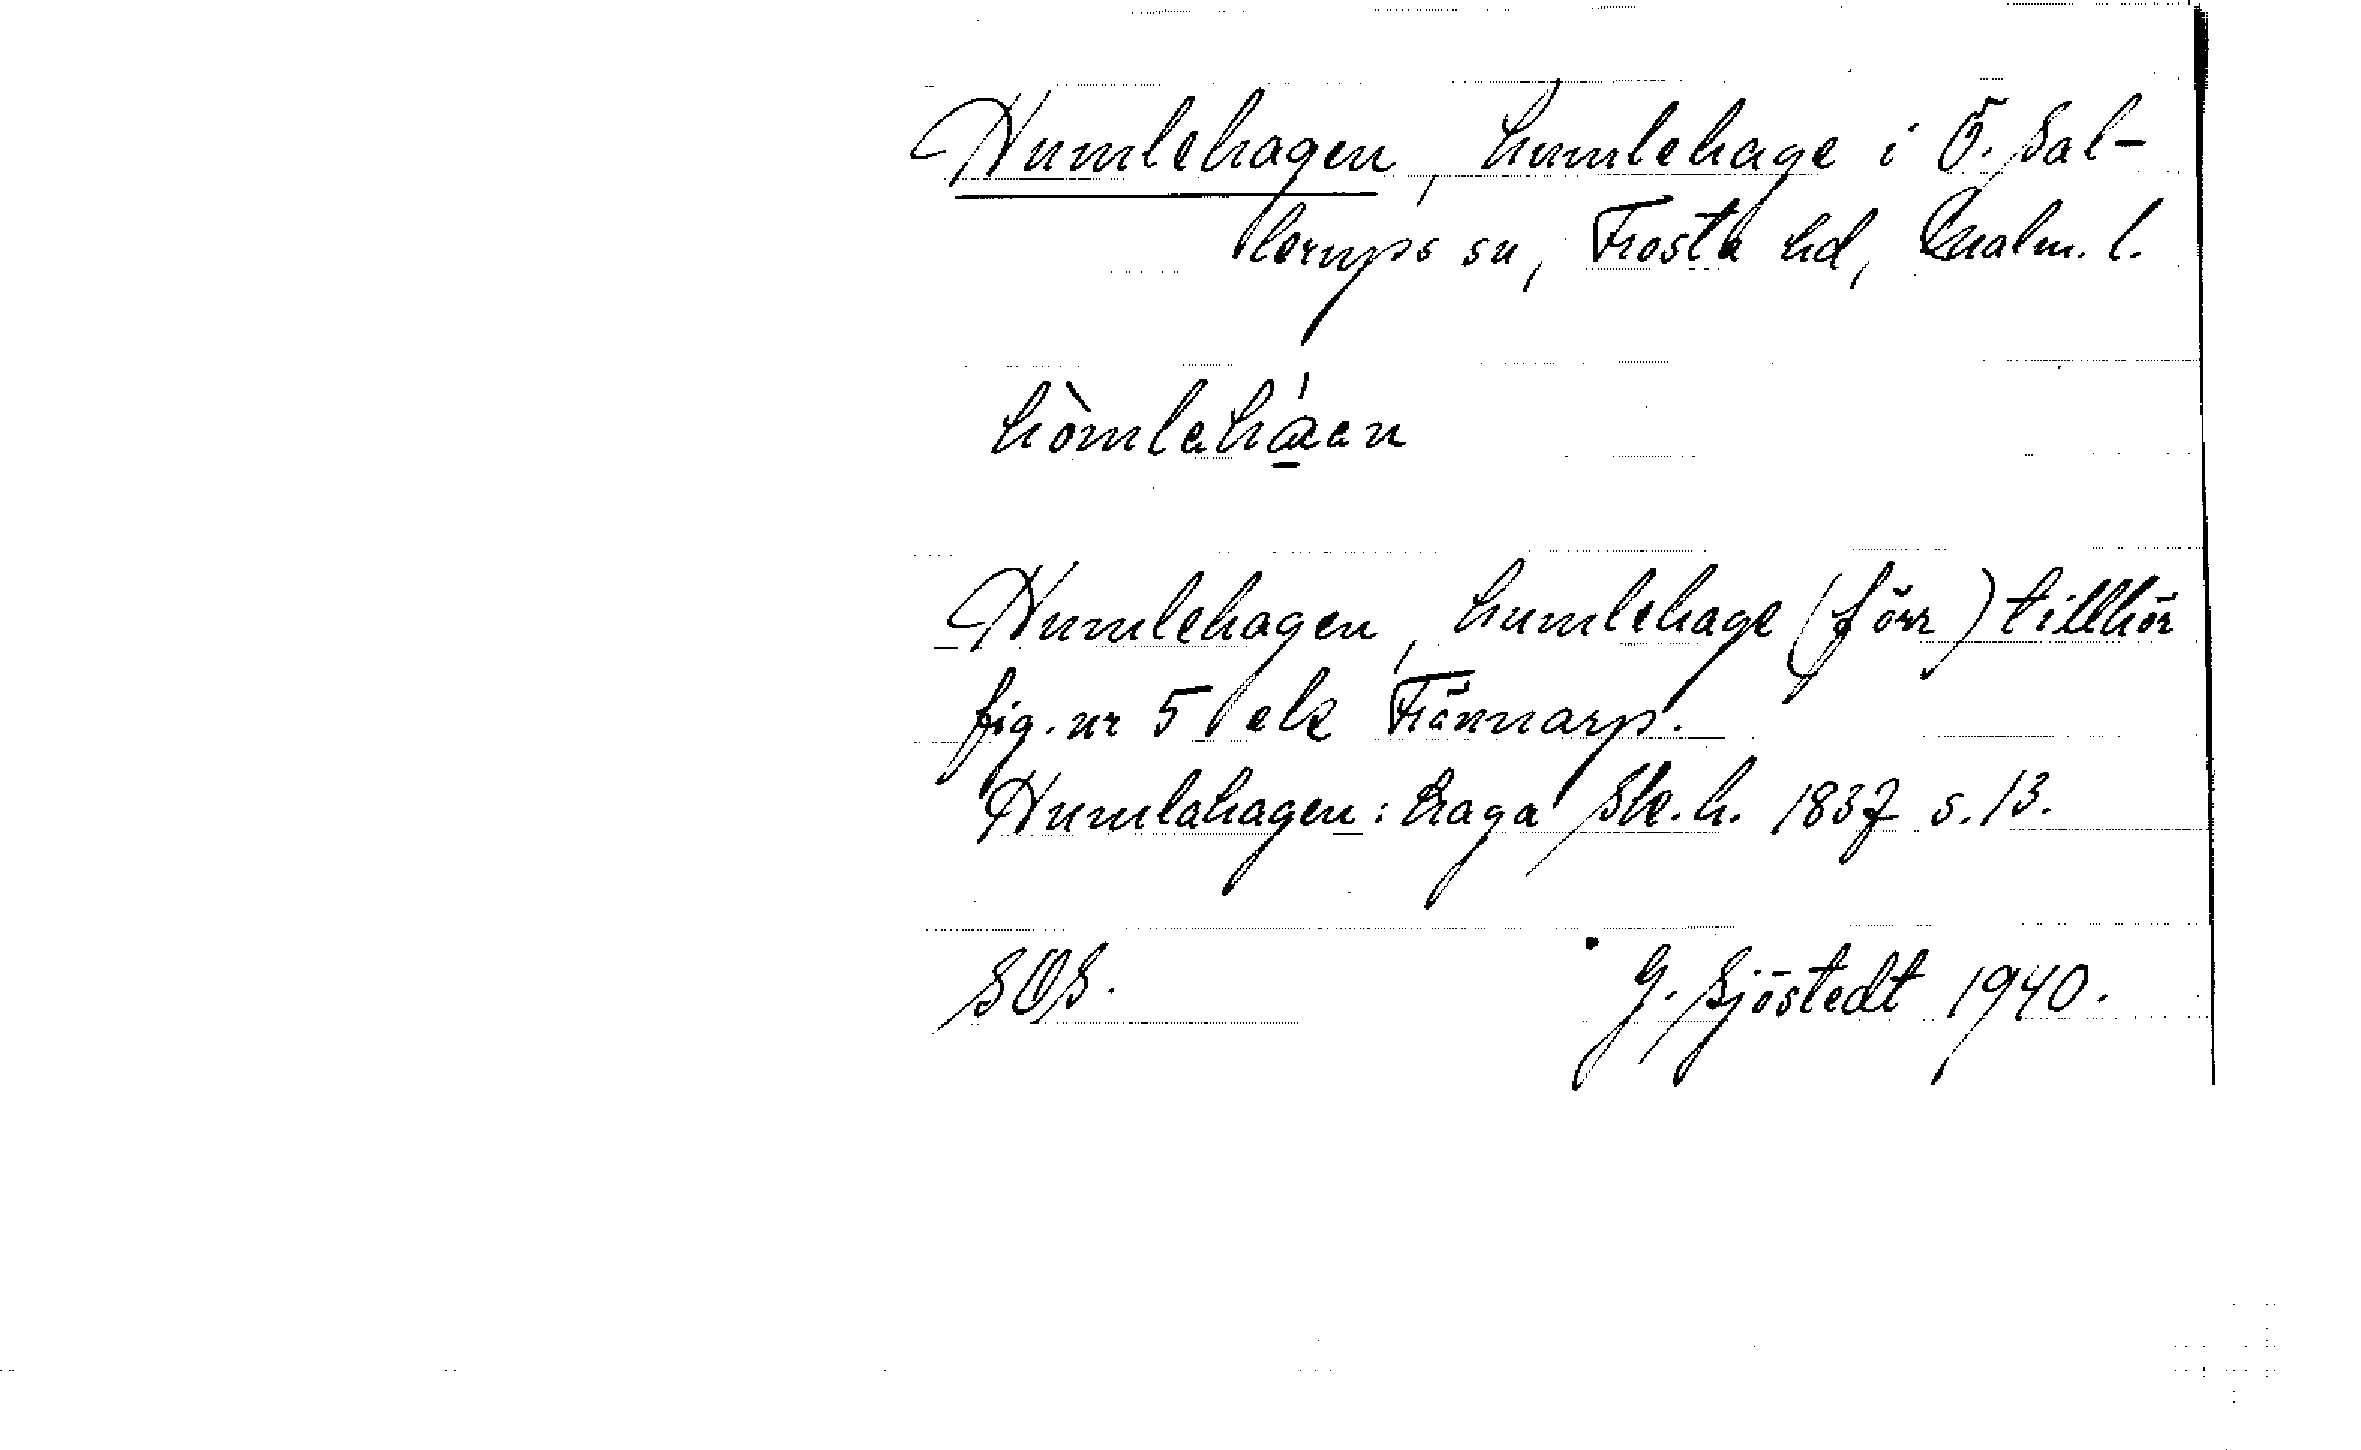 Humlehagen, humlehage i Ö. Sal-
lerups sn, Frosta hd, Malm. l.
hòmlehá̱en
Humlehagen, humlehage (förr) tillhör
fig. nr 5 elr Frännarp.
Humlahagen: Laga Ske. h. 1837 s. 13.
SOS.
G. Sjöstedt 1940.